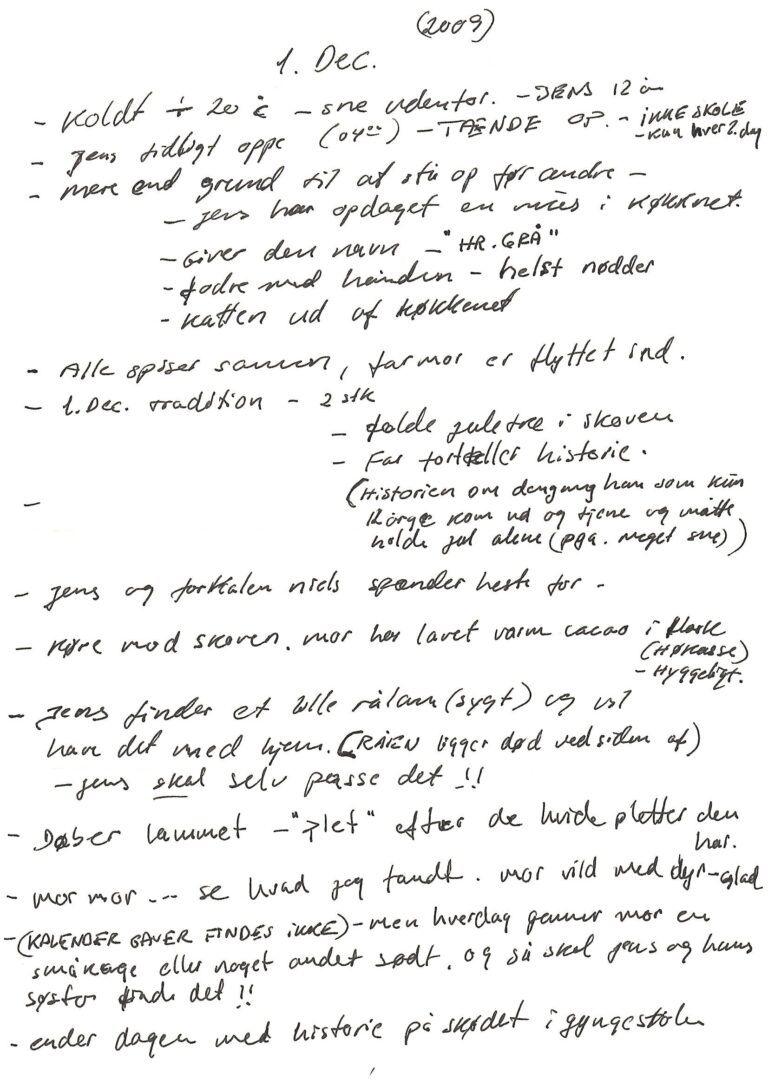 (2009)
1. Dec.
- Koldt ÷ 20 c - sne udenfor. - JENS 12 år
- Jens tidligt oppe (04⁰⁰) - TÆNDE OP. - IKKE SKOLE
- kun hver 2. dag
- mere end grund til at stå op før andre -
- Jens har opdaget en mus i køkknet.
- Giver den navn - "HR. GRÅ"
- fodre med hånden - helst nødder
- Katten ud af køkkenet
- Alle spiser sammen, farmor er flyttet ind.
- 1. Dec. tradition - 2 stk
- fælde juletræ i skoven
- Far fortæller historie.
(Historien om dengang han som kun
kom ud og tjene og måtte
holde jul alene (pga. meget sne))
-
- Jens og forkalen niels spænder heste for -
- køre mod skoven. mor har lavet varm cacao i flask
(HØKASSE)
- Hyggeligt.
- Jens finder et lille rålam (sygt) og vil
have det med hjem. (RÅEN ligger død ved siden af)
- Jens skal selv passe det !!
- Døber lammet - "Plet" efter de hvide pletter den
har.
- mor mor --- se hvad jeg fandt. mor vild med dyr - glad
- (KALENDER GAVER FINDES IKKE) - men hverdag gemmer mor en
småkage eller noget andet sødt. og så skal Jens og hans
søster finde det !!
- ender dagen med historie på skødet i gyngestolen